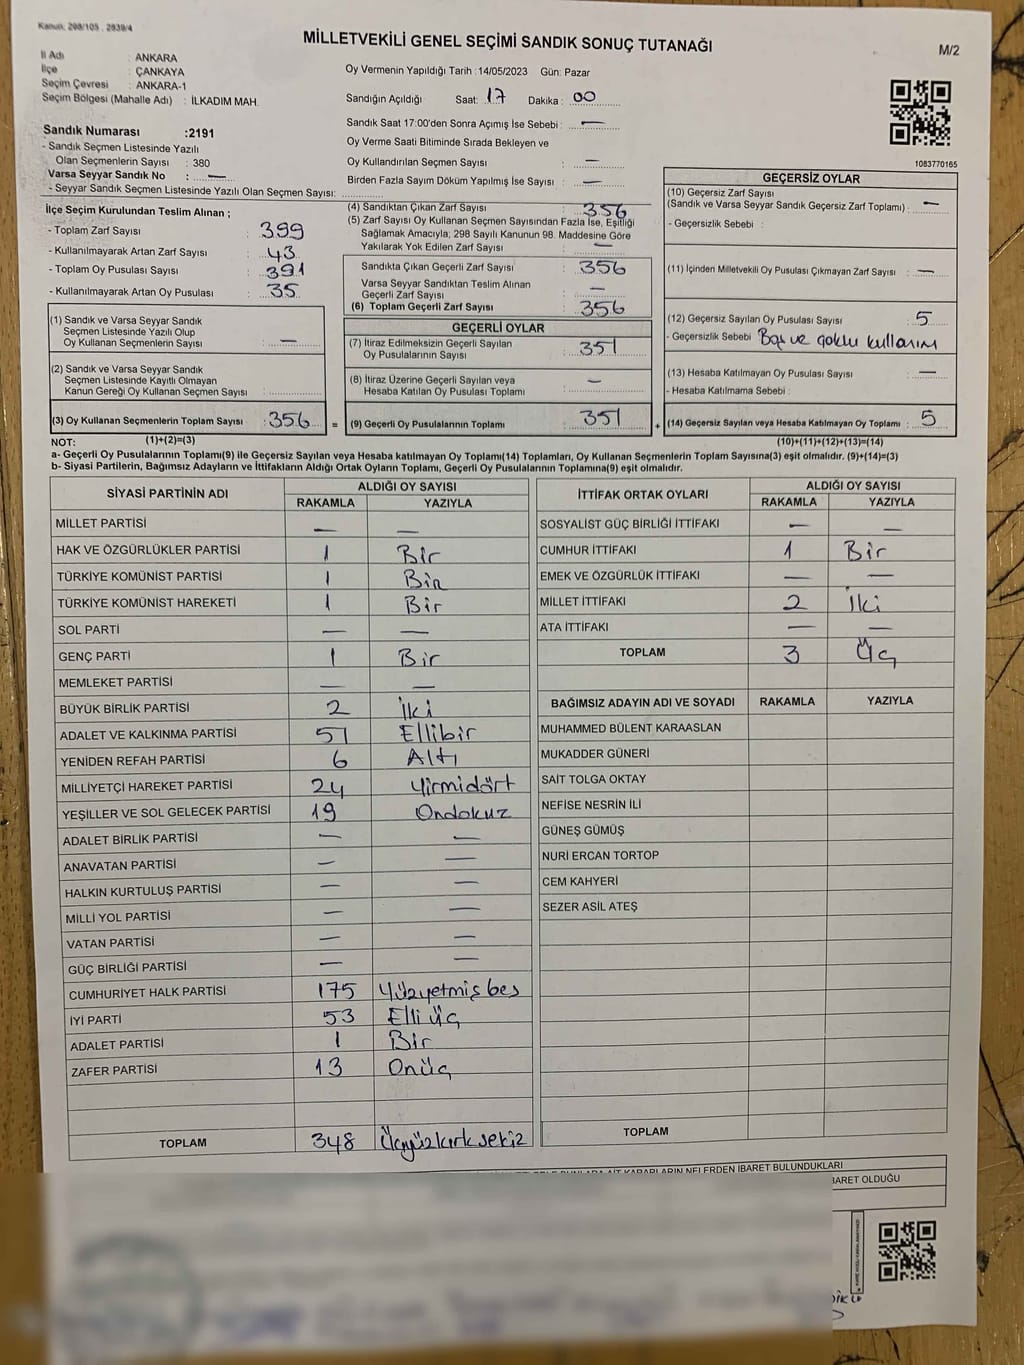 Kanun: 298/105 . 2839/4
MİLLETVEKİLİ GENEL SEÇİMİ SANDIK SONUÇ TUTANAĞI
M/2
İl Adı : ANKARA
İlçe : ÇANKAYA
Seçim Çevresi : ANKARA-1
Seçim Bölgesi (Mahalle Adı) : İLKADIM MAH.
Oy Vermenin Yapıldığı Tarih :14/05/2023 Gün: Pazar
Sandığın Açıldığı Saat: 17 Dakika : 00
Sandık Saat 17:00'den Sonra Açımış İse Sebebi : —
Oy Verme Saati Bitiminde Sırada Bekleyen ve
Oy Kullandırılan Seçmen Sayısı : —
Birden Fazla Sayım Döküm Yapılmış İse Sayısı : —
Sandık Numarası :2191
- Sandık Seçmen Listesinde Yazılı
Olan Seçmenlerin Sayısı : 380
Varsa Seyyar Sandık No : —
- Seyyar Sandık Seçmen Listesinde Yazılı Olan Seçmen Sayısı:
1083770165
İlçe Seçim Kurulundan Teslim Alınan ;
- Toplam Zarf Sayısı : 399
- Kullanılmayarak Artan Zarf Sayısı : 43
- Toplam Oy Pusulası Sayısı : 391
- Kullanılmayarak Artan Oy Pusulası : 35
(1) Sandık ve Varsa Seyyar Sandık
Seçmen Listesinde Yazılı Olup
Oy Kullanan Seçmenlerin Sayısı : —
(2) Sandık ve Varsa Seyyar Sandık
Seçmen Listesinde Kayıtlı Olmayan
Kanun Gereği Oy Kullanan Seçmen Sayısı :
(3) Oy Kullanan Seçmenlerin Toplam Sayısı : 356
(1)+(2)=(3)
(4) Sandıktan Çıkan Zarf Sayısı : 356
(5) Zarf Sayısı Oy Kullanan Seçmen Sayısından Fazla İse, Eşitliği
Sağlamak Amacıyla; 298 Sayılı Kanunun 98. Maddesine Göre
Yakılarak Yok Edilen Zarf Sayısı : —
Sandıkta Çıkan Geçerli Zarf Sayısı : 356
Varsa Seyyar Sandıktan Teslim Alınan
Geçerli Zarf Sayısı : —
(6) Toplam Geçerli Zarf Sayısı : 356
GEÇERLİ OYLAR
(7) İtiraz Edilmeksizin Geçerli Sayılan
Oy Pusulalarının Sayısı : 351
(8) İtiraz Üzerine Geçerli Sayılan veya
Hesaba Katılan Oy Pusulası Toplamı : —
= (9) Geçerli Oy Pusulalarının Toplamı : 351
GEÇERSİZ OYLAR
(10) Geçersiz Zarf Sayısı
(Sandık ve Varsa Seyyar Sandık Geçersiz Zarf Toplamı) : —
- Geçersizlik Sebebi :
(11) İçinden Milletvekili Oy Pusulası Çıkmayan Zarf Sayısı : —
(12) Geçersiz Sayılan Oy Pusulası Sayısı : 5
- Geçersizlik Sebebi : Boş ve çoklu kullanım
(13) Hesaba Katılmayan Oy Pusulası Sayısı : —
- Hesaba Katılmama Sebebi :
+ (14) Geçersiz Sayılan veya Hesaba Katılmayan Oy Toplamı : 5
(10)+(11)+(12)+(13)=(14)
NOT:
a- Geçerli Oy Pusulalarının Toplamı(9) ile Geçersiz Sayılan veya Hesaba katılmayan Oy Toplamı(14) Toplamları, Oy Kullanan Seçmenlerin Toplam Sayısına(3) eşit olmalıdır. (9)+(14)=(3)
b- Siyasi Partilerin, Bağımsız Adayların ve İttifakların Aldığı Ortak Oyların Toplamı, Geçerli Oy Pusulalarının Toplamına(9) eşit olmalıdır.
SİYASİ PARTİNİN ADI ALDIĞI OY SAYISI
RAKAMLA YAZIYLA
MİLLET PARTİSİ — —
HAK VE ÖZGÜRLÜKLER PARTİSİ 1 Bir
TÜRKİYE KOMÜNİST PARTİSİ 1 Bir
TÜRKİYE KOMÜNİST HAREKETİ 1 Bir
SOL PARTİ — —
GENÇ PARTİ 1 Bir
MEMLEKET PARTİSİ — —
BÜYÜK BİRLİK PARTİSİ 2 İki
ADALET VE KALKINMA PARTİSİ 51 Ellibir
YENİDEN REFAH PARTİSİ 6 Altı
MİLLİYETÇİ HAREKET PARTİSİ 24 Yirmidört
YEŞİLLER VE SOL GELECEK PARTİSİ 19 Ondokuz
ADALET BİRLİK PARTİSİ — —
ANAVATAN PARTİSİ — —
HALKIN KURTULUŞ PARTİSİ — —
MİLLİ YOL PARTİSİ — —
VATAN PARTİSİ — —
GÜÇ BİRLİĞİ PARTİSİ — —
CUMHURİYET HALK PARTİSİ 175 Yüzyetmişbeş
İYİ PARTİ 53 Elli üç
ADALET PARTİSİ 1 Bir
ZAFER PARTİSİ 13 Onüç
TOPLAM 348 Üçyüzkırksekiz
İTTİFAK ORTAK OYLARI ALDIĞI OY SAYISI
RAKAMLA YAZIYLA
SOSYALİST GÜÇ BİRLİĞİ İTTİFAKI — —
CUMHUR İTTİFAKI 1 Bir
EMEK VE ÖZGÜRLÜK İTTİFAKI — —
MİLLET İTTİFAKI 2 İki
ATA İTTİFAKI — —
TOPLAM 3 Üç
BAĞIMSIZ ADAYIN ADI VE SOYADI RAKAMLA YAZIYLA
MUHAMMED BÜLENT KARAASLAN
MUKADDER GÜNERİ
SAİT TOLGA OKTAY
NEFİSE NESRİN İLİ
GÜNEŞ GÜMÜŞ
NURİ ERCAN TORTOP
CEM KAHYERİ
SEZER ASİL ATEŞ
TOPLAM
AİT KARARLARIN NELERDEN İBARET BULUNDUKLARI
BARET OLDUĞU